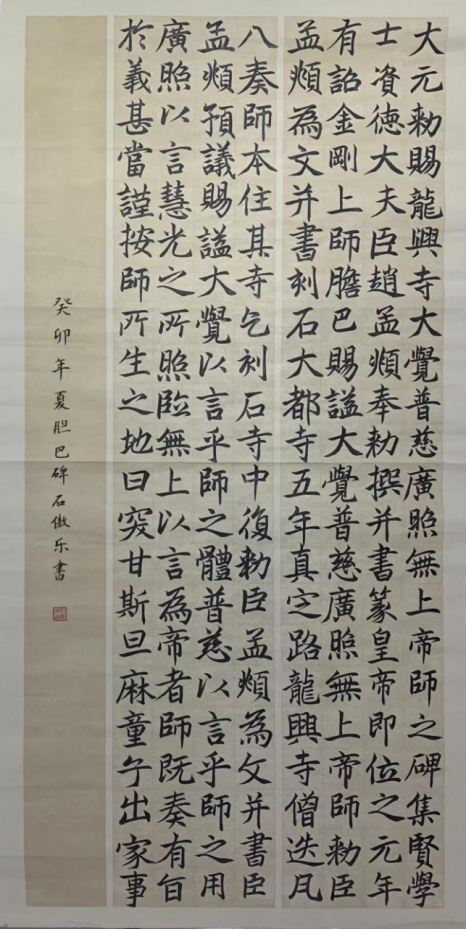 大元勅賜龍興寺大覺普慈廣照無上帝師之碑集賢學
士資德大夫臣趙孟頫奉勅撰并書篆皇帝即位之元年
有詔金剛上師膽巴賜謚大覺普慈廣照無上帝師勅臣
孟頫為文并書刻石大都寺五年真定路龍興寺僧迭凡
八奏師本住其寺乞刻石寺中復勅臣孟頫為文并書臣
孟頫預議賜謚大覺以言乎師之體普慈以言乎師之用
廣照以言慧光之所照臨無上以言為帝者師既奏有旨
於義甚當謹按師所生之地曰突甘斯旦麻童子出家事
癸卯年夏胆巴碑石傲乐書